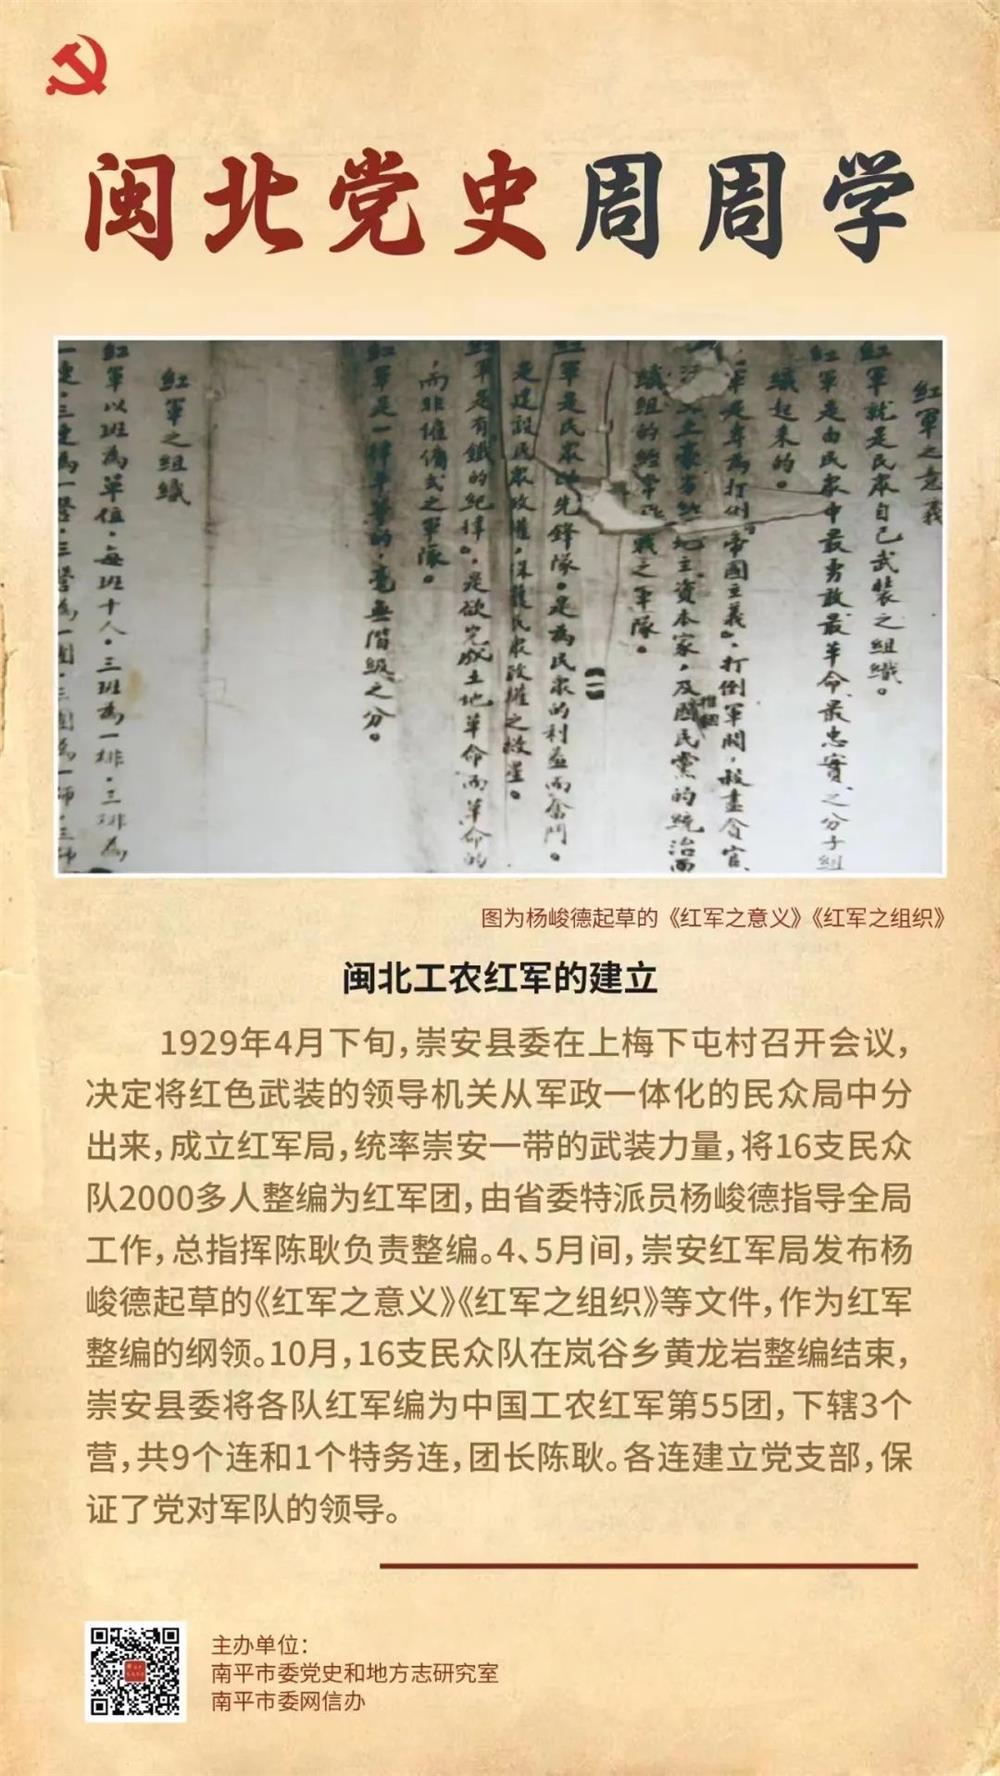 闽北党史周周学
红軍之意義
红軍就是民眾自己武装之組織。
红軍是由民眾中最勇敢最革命、最忠實之分子組
織起来的。
軍是專為打倒帝國主義，打倒軍閥，殺盡貪官、
土豪劣紳地主資本家，及國民黨的統治而
推翻
織組的經常戰之軍隊。
【一】
红軍是民眾的先鋒隊。是為民眾的利益而奮鬥。
是建設民眾政權，保護民眾政權之救星。
红軍是有鐵的紀律，是欲完成土地革命而革命的
而非僱傭式之軍隊。
红軍是一律平等的，毫無階級之分。
红軍之組織
红軍以班為單位，每班十人。三班為一排，三排為
一連，三連為一營，三營為一團，三團為一師，三師
图为杨峻德起草的《红军之意义》《红军之组织》
闽北工农红军的建立
1929年4月下旬，崇安县委在上梅下屯村召开会议，
决定将红色武装的领导机关从军政一体化的民众局中分
出来，成立红军局，统率崇安一带的武装力量，将16支民众
队2000多人整编为红军团，由省委特派员杨峻德指导全局
工作，总指挥陈耿负责整编。4、5月间，崇安红军局发布杨
峻德起草的《红军之意义》《红军之组织》等文件，作为红军
整编的纲领。10月，16支民众队在岚谷乡黄龙岩整编结束，
崇安县委将各队红军编为中国工农红军第55团，下辖3个
营，共9个连和1个特务连，团长陈耿。各连建立党支部，保
证了党对军队的领导。
主办单位：
南平市委党史和地方志研究室
南平市委网信办